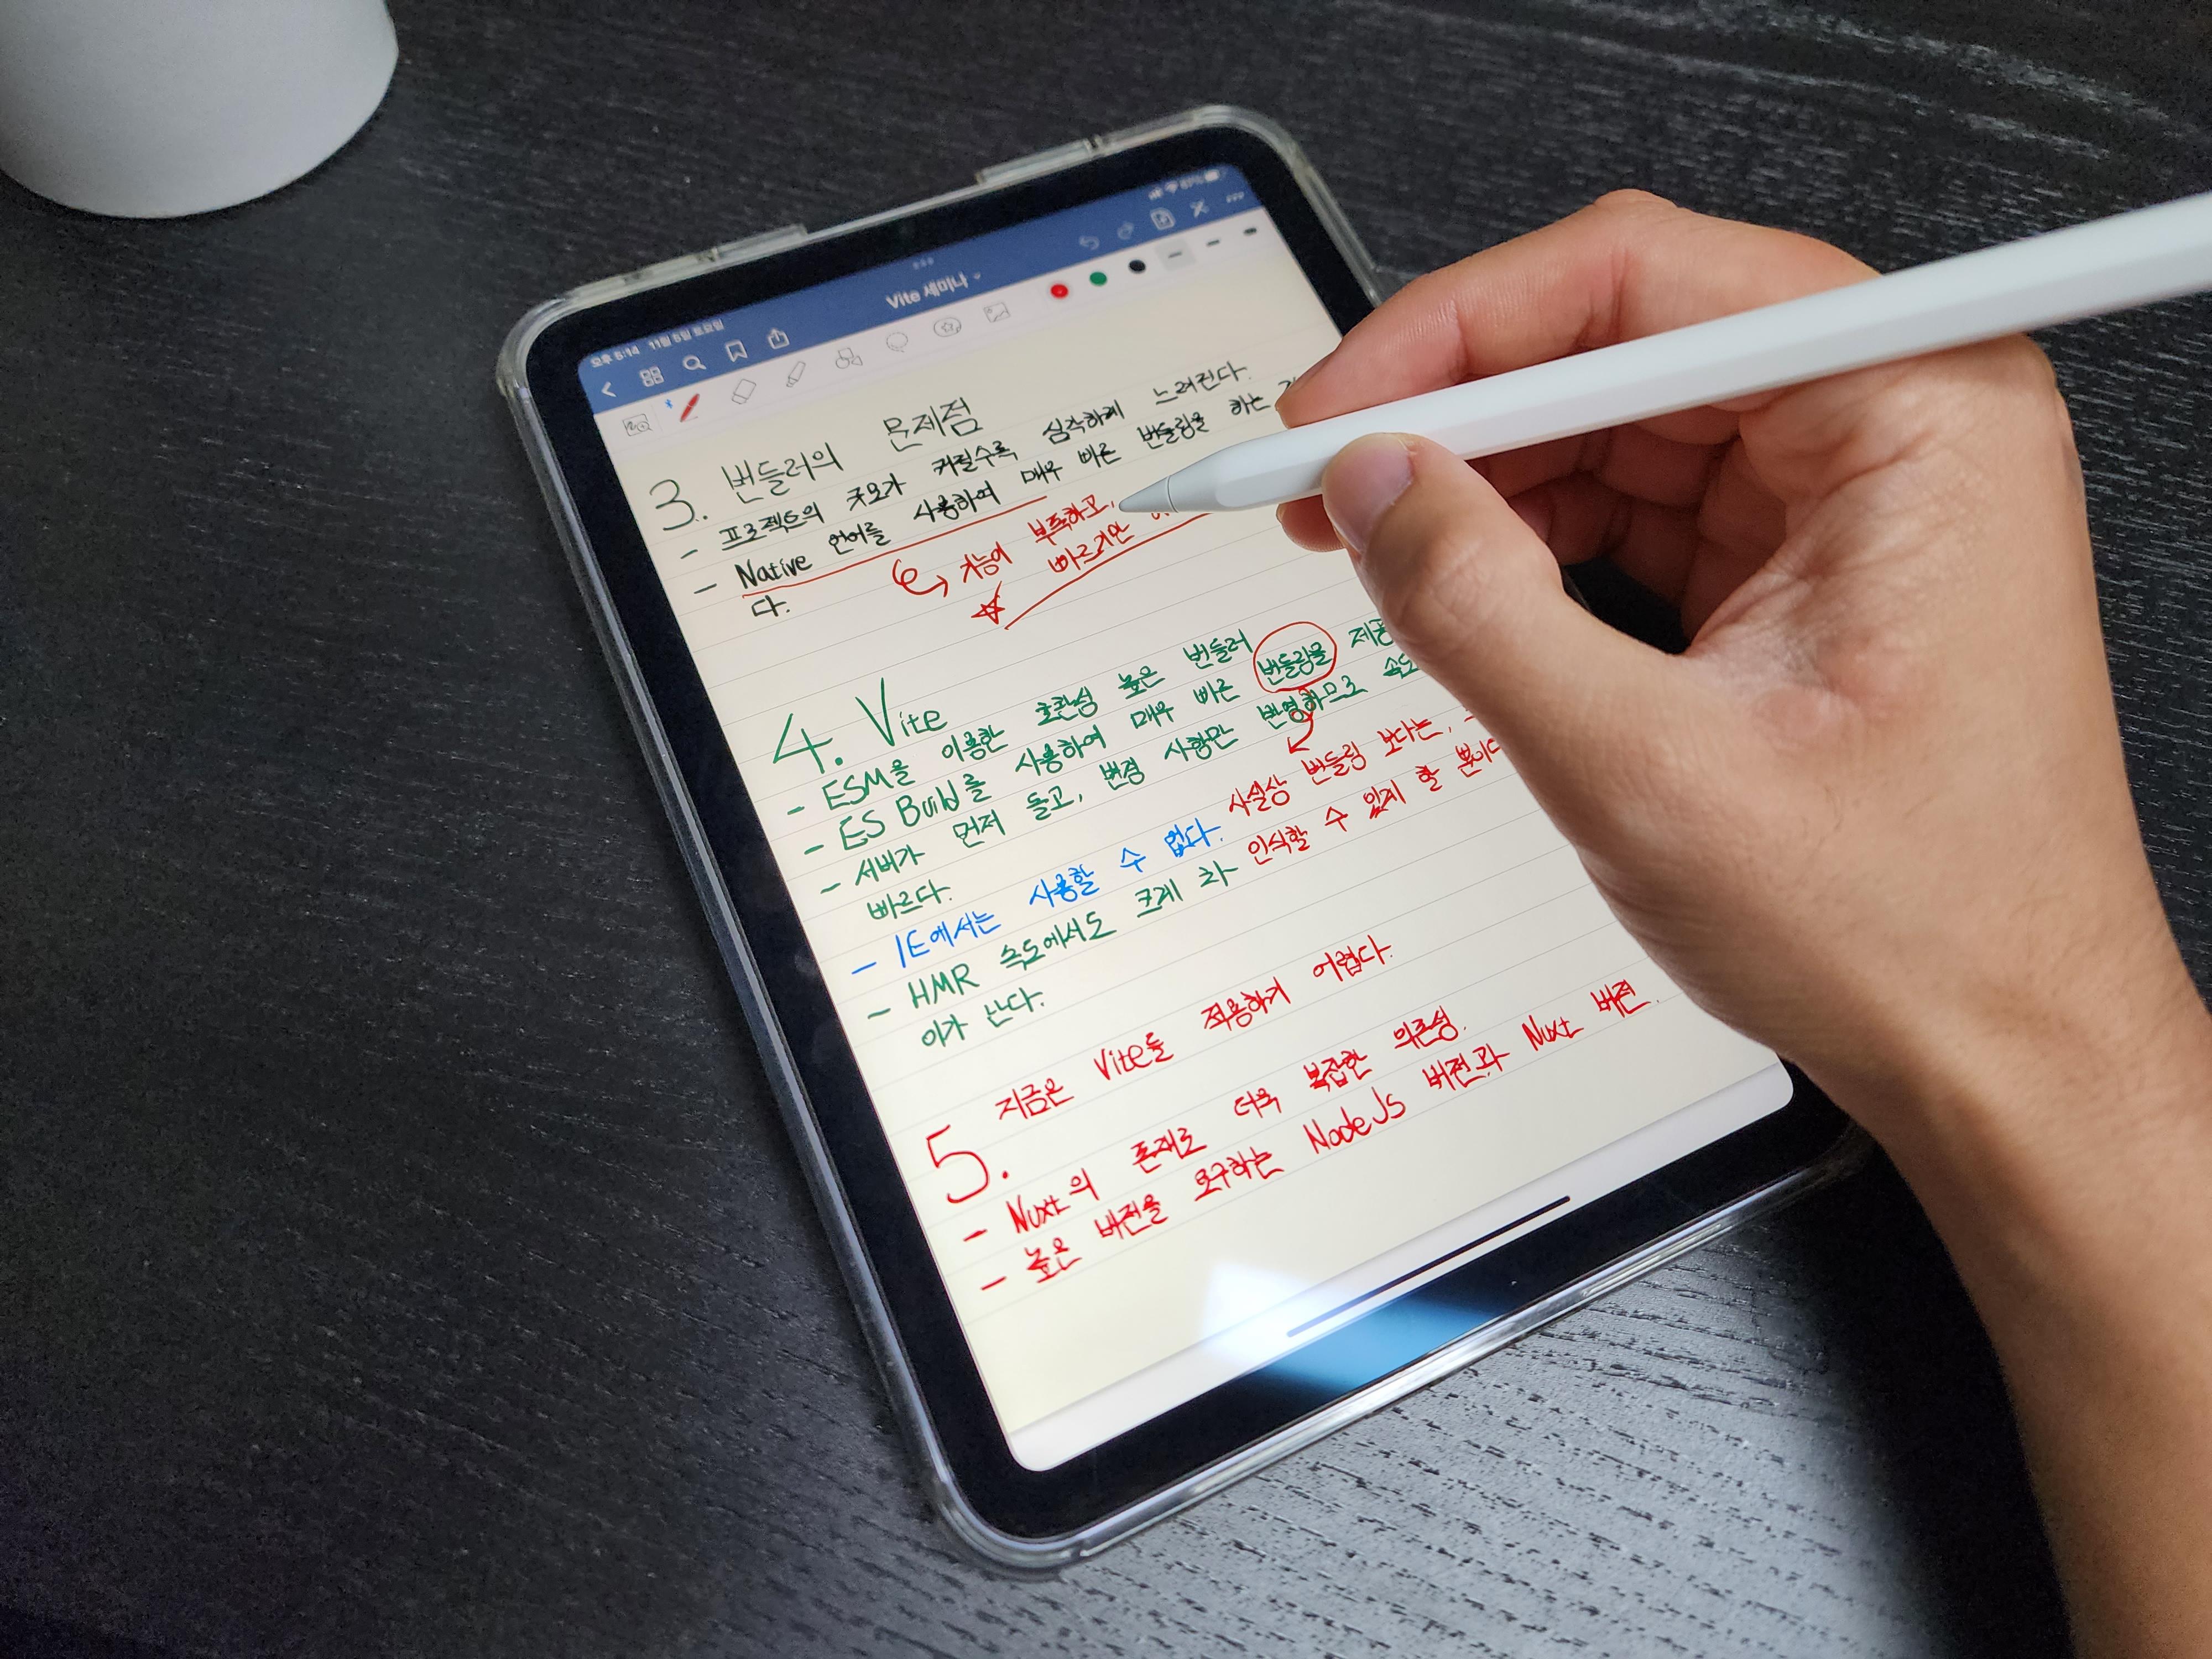 오후 5:14 11월 5일 토요일
Vite 세미나
3. 번들러의 문제점
- 프로젝트의 규모가 커질수록 심각하게 느려진다.
- Native 언어를 사용하여 매우 빠른 번들링을 하는
다.
기능이 부족하고,
빠르기만
4. Vite
- ESM을 이용한 호환성 높은 번들러
- ES Build를 사용하여 매우 빠른 번들링을 제공
- 서버가 먼저 들고, 변경 사항만 반영하므로 속도
빠르다.
사실상 번들링 보다는,
- IE에서는 사용할 수 없다.
인식할 수 있게 할 뿐이다
- HMR 속도에서도 크게 차
이가 난다.
5. 지금은 Vite를 적용하기 어렵다.
- Nuxt의 존재로 더욱 복잡한 의존성.
- 높은 버전을 요구하는 NodeJs 버전과 Nuxt 버전.